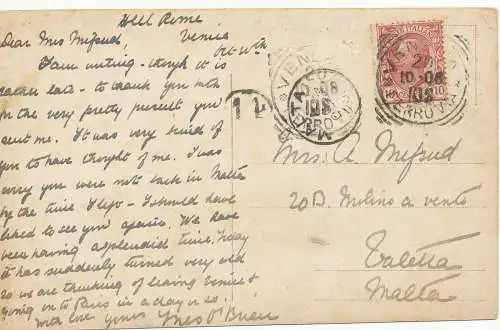 Hotel Rome
Venice
Oct
Dear Mrs Mifsud,
I am writing - though it is
rather late - to thank you
for the very pretty present you
sent me. It was very kind of
you to have thought of me. I was
sorry you were not back in Malta
by the time I left - I should have
liked to see you again. We have
been having a splendid time. Today
it has suddenly turned very cold
so we are thinking of leaving Venice &
going on to Paris in a day or so.
with love yours
Ines O'Brien
Mrs. A. Mifsud
20D. Molino a vento
Valetta
Malta
10
10 08
FERROVIA
MALTA
08